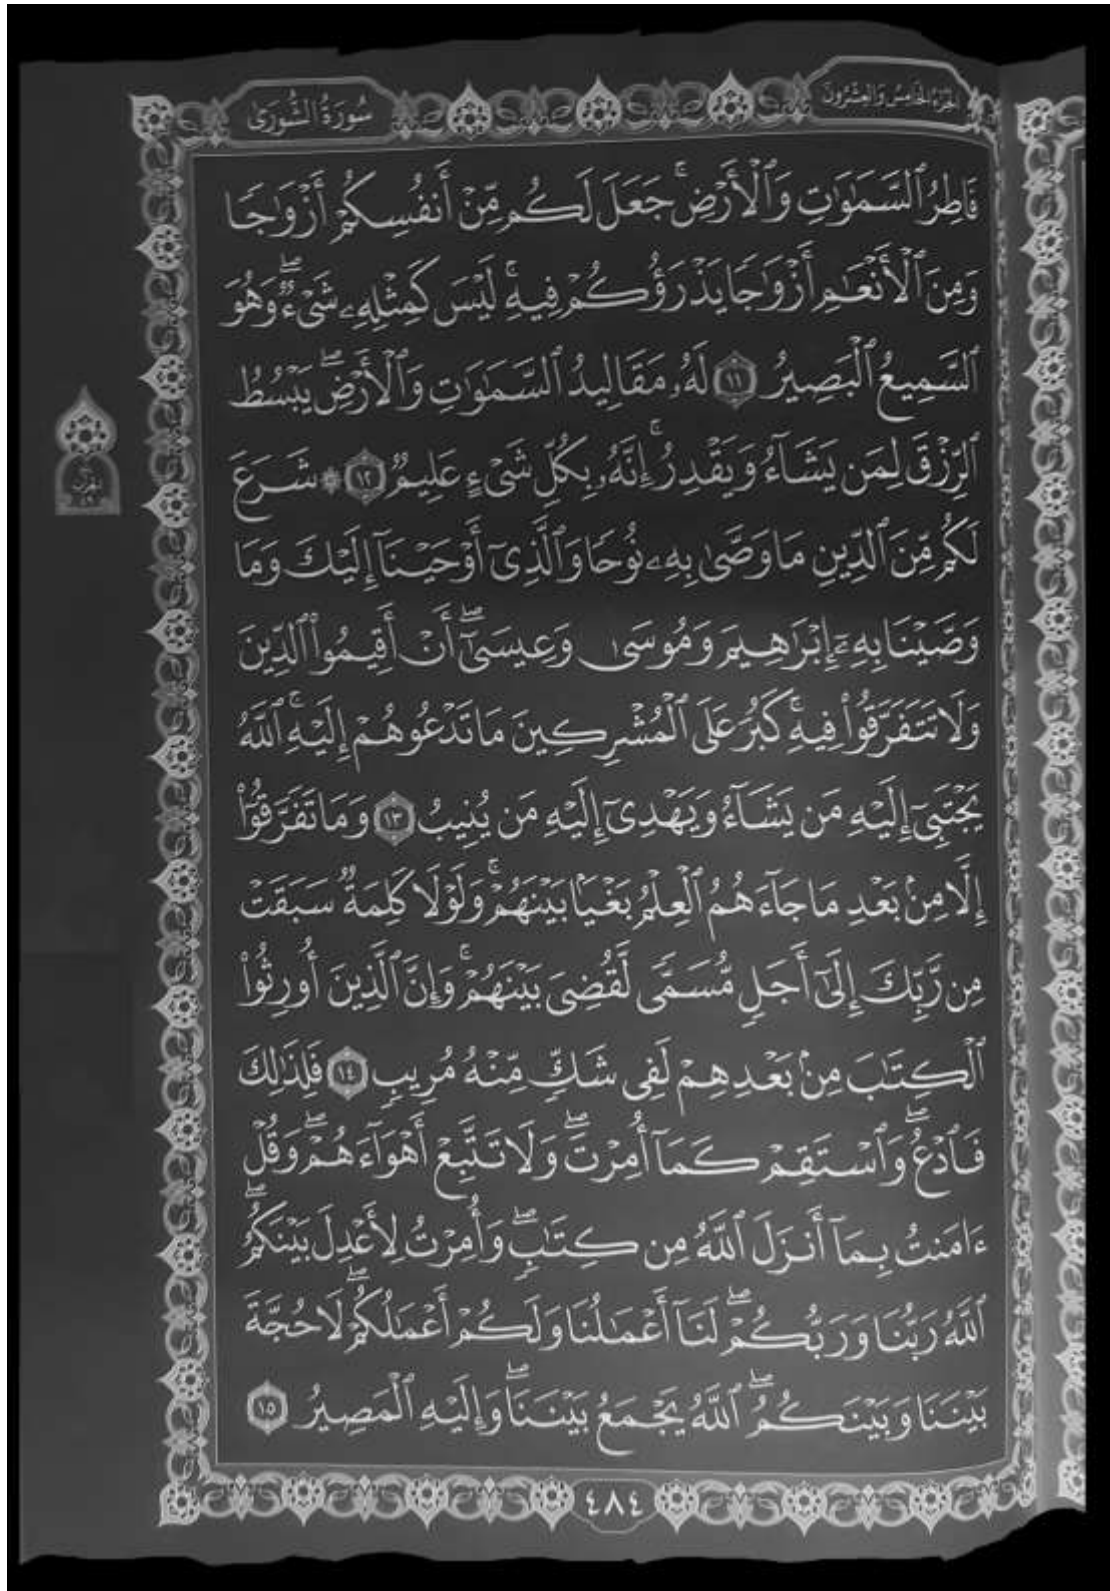 الجزء الخامس والعشرون
سورة الشورى
فَاطِرُ ٱلسَّمَٰوَٰتِ وَٱلْأَرْضِۚ جَعَلَ لَكُم مِّنْ أَنفُسِكُمْ أَزْوَٰجًا
وَمِنَ ٱلْأَنْعَٰمِ أَزْوَٰجًا يَذْرَؤُكُمْ فِيهِۚ لَيْسَ كَمِثْلِهِۦ شَىْءٌۖ وَهُوَ
ٱلسَّمِيعُ ٱلْبَصِيرُ ١١ لَهُۥ مَقَالِيدُ ٱلسَّمَٰوَٰتِ وَٱلْأَرْضِۖ يَبْسُطُ
ٱلرِّزْقَ لِمَن يَشَآءُ وَيَقْدِرُۚ إِنَّهُۥ بِكُلِّ شَىْءٍ عَلِيمٌ ١٢ ۞ شَرَعَ
لَكُم مِّنَ ٱلدِّينِ مَا وَصَّىٰ بِهِۦ نُوحًا وَٱلَّذِىٓ أَوْحَيْنَآ إِلَيْكَ وَمَا
وَصَّيْنَا بِهِۦٓ إِبْرَٰهِيمَ وَمُوسَىٰ وَعِيسَىٰٓۖ أَنْ أَقِيمُوا۟ ٱلدِّينَ
وَلَا تَتَفَرَّقُوا۟ فِيهِۚ كَبُرَ عَلَى ٱلْمُشْرِكِينَ مَا تَدْعُوهُمْ إِلَيْهِۚ ٱللَّهُ
يَجْتَبِىٓ إِلَيْهِ مَن يَشَآءُ وَيَهْدِىٓ إِلَيْهِ مَن يُنِيبُ ١٣ وَمَا تَفَرَّقُوٓا۟
إِلَّا مِنۢ بَعْدِ مَا جَآءَهُمُ ٱلْعِلْمُ بَغْيًۢا بَيْنَهُمْۚ وَلَوْلَا كَلِمَةٌ سَبَقَتْ
مِن رَّبِّكَ إِلَىٰٓ أَجَلٍ مُّسَمًّى لَّقُضِىَ بَيْنَهُمْۚ وَإِنَّ ٱلَّذِينَ أُورِثُوا۟
ٱلْكِتَٰبَ مِنۢ بَعْدِهِمْ لَفِى شَكٍّ مِّنْهُ مُرِيبٍ ١٤ فَلِذَٰلِكَ
فَٱدْعُۖ وَٱسْتَقِمْ كَمَآ أُمِرْتَۖ وَلَا تَتَّبِعْ أَهْوَآءَهُمْۖ وَقُلْ
ءَامَنتُ بِمَآ أَنزَلَ ٱللَّهُ مِن كِتَٰبٍۖ وَأُمِرْتُ لِأَعْدِلَ بَيْنَكُمُۖ
ٱللَّهُ رَبُّنَا وَرَبُّكُمْۖ لَنَآ أَعْمَٰلُنَا وَلَكُمْ أَعْمَٰلُكُمْۖ لَا حُجَّةَ
بَيْنَنَا وَبَيْنَكُمُۖ ٱللَّهُ يَجْمَعُ بَيْنَنَاۖ وَإِلَيْهِ ٱلْمَصِيرُ ١٥
٤٨٤